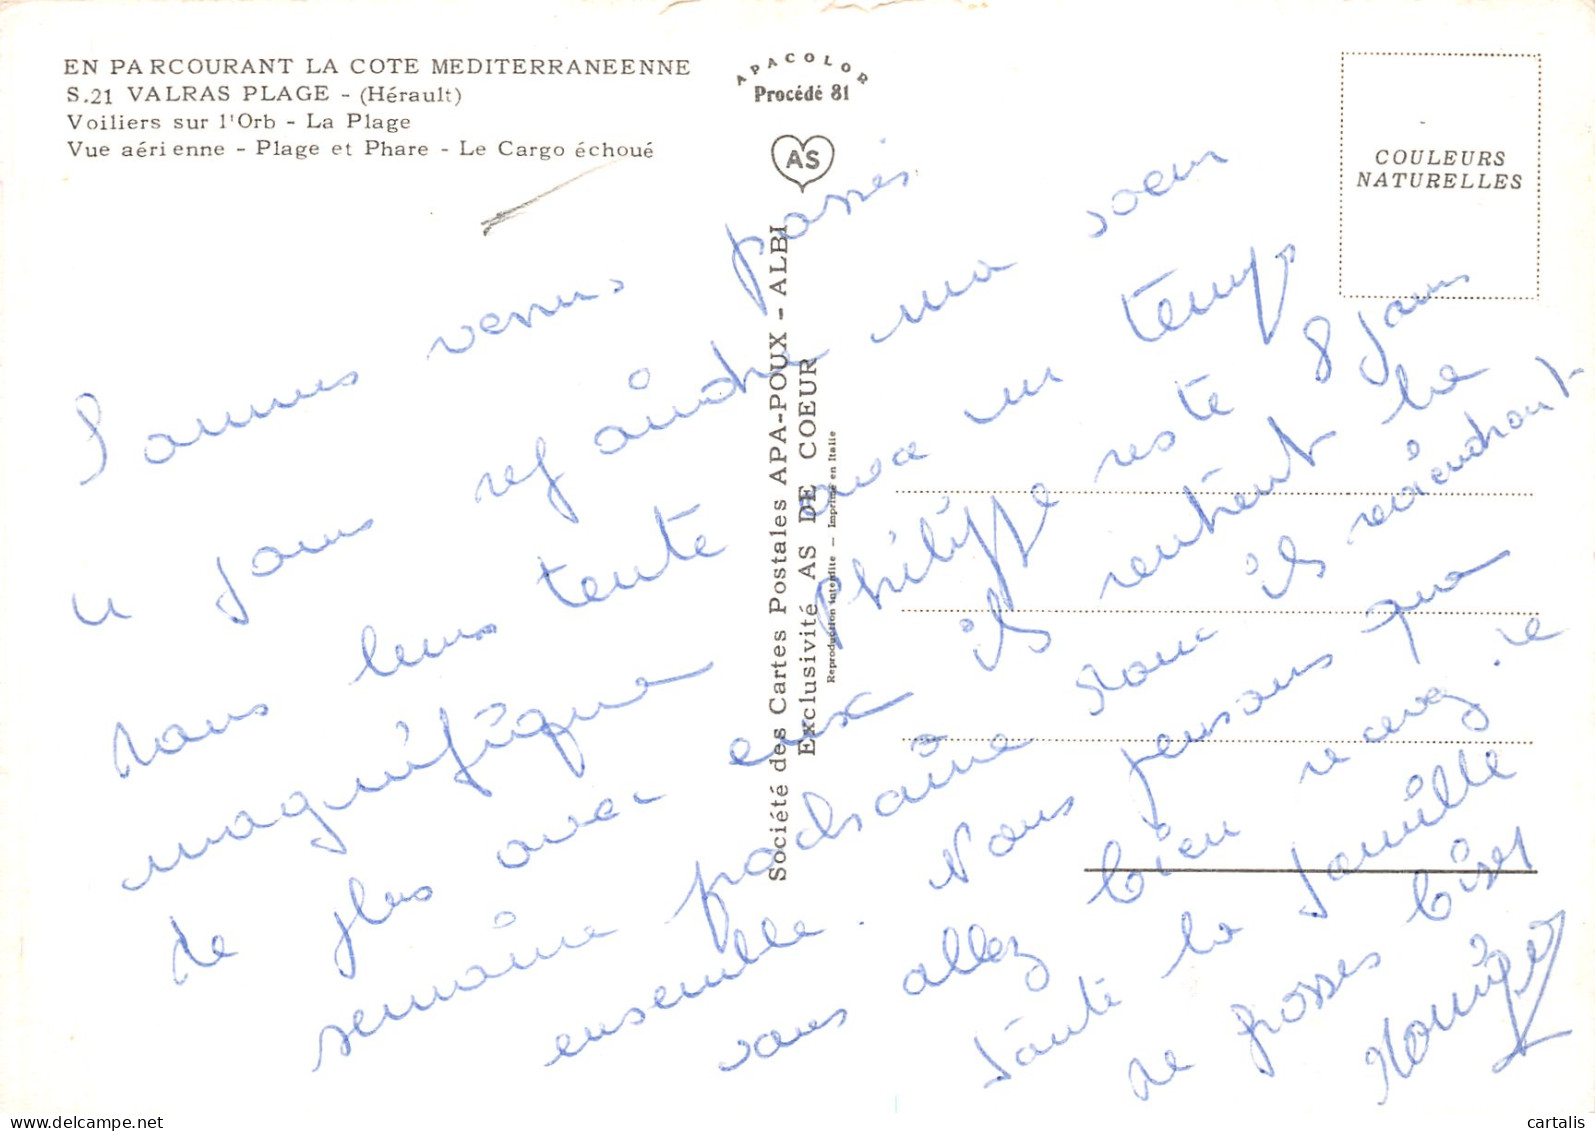 EN PARCOURANT LA COTE MEDITERRANEENNE
S.21 VALRAS PLAGE - (Hérault)
Voiliers sur l'Orb - La Plage
Vue aérienne - Plage et Phare - Le Cargo échoué
APACOLOR
Procédé 81
AS
COULEURS
NATURELLES
Société des Cartes Postales APA-POUX - ALBI
Exclusivité AS DE COEUR
Reproduction interdite — Imprimé en Italie
Sommes venus passés
u jours rejoindre ma soeur
dans leurs tente avec un temps
magnifique Philippe reste 8 jours
de plus avec eux ils rentrent la
semaine prochaine pour ils reviendront
ensemble. Nous pensons que
vous allez bien recevez de
Santé la famille
de grosses bises
Monique
www.delcampe.net
cartalis